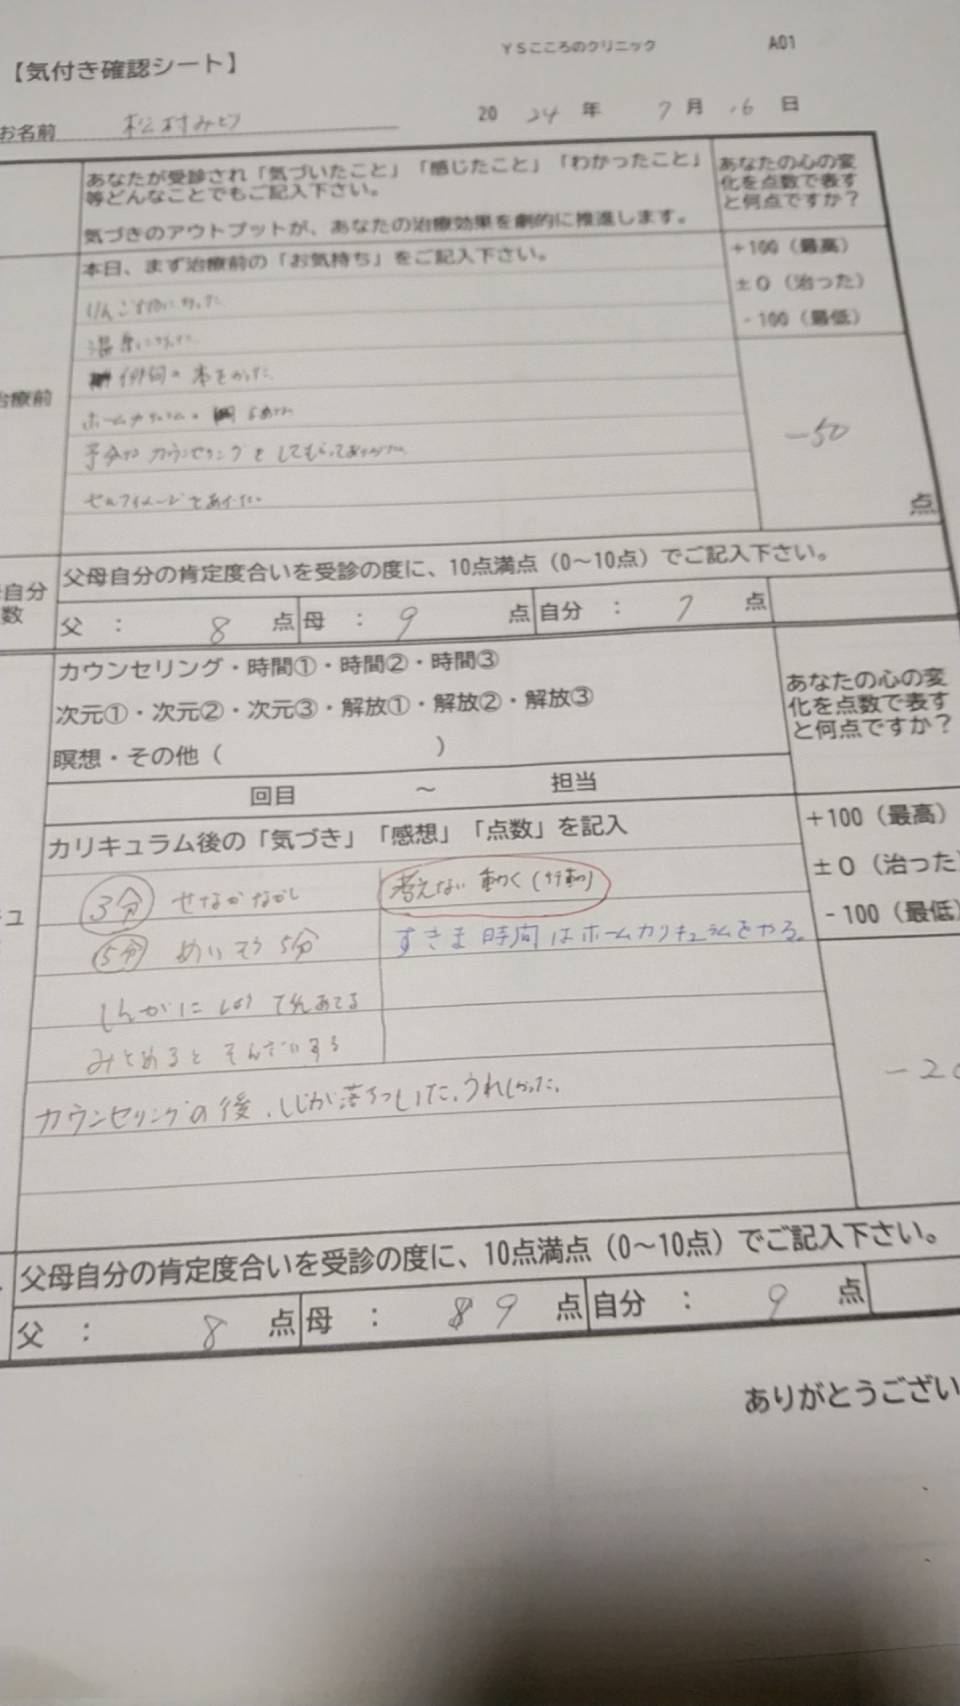 YSこころのクリニック A01
【気付き確認シート】
お名前 松村みどり 2024年 7月16日
あなたが受診され「気づいたこと」「感じたこと」「わかったこと」
等どんなことでもご記入下さい。
気づきのアウトプットが、あなたの治療効果を劇的に推進します。
あなたの心の変
化を点数で表す
と何点ですか？
本日、まず治療前の「お気持ち」をご記入下さい。
+100（最高）
±0（治った）
-100（最低）
治療前
りんご
温泉に行った
俳句の本をかった
ホームカリキュラム
カウンセリングをしてもらって
セルフイメージをあげたい
-50
点
自分
数
父母自分の肯定度合いを受診の度に、10点満点（0～10点）でご記入下さい。
父 ： 8 点 母 ： 9 点 自分 ： 7 点
カウンセリング・時間①・時間②・時間③
次元①・次元②・次元③・解放①・解放②・解放③
瞑想・その他（ ）
あなたの心の変
化を点数で表す
と何点ですか？
回目 ～ 担当
カリキュラム後の「気づき」「感想」「点数」を記入
+100（最高）
±0（治った
-100（最低）
ュ
3分 せなかながし
5分 めいそう 5分
しんがに てれあてる
みとめると そんざいする
考えない 動く（行動）
すきま時間はホームカリキュラムをやる。
カウンセリングの後、 落ちついた。うれしかった。
-20
父母自分の肯定度合いを受診の度に、10点満点（0～10点）でご記入下さい。
父 ： 8 点 母 ： 9 点 自分 ： 9 点
ありがとうござい